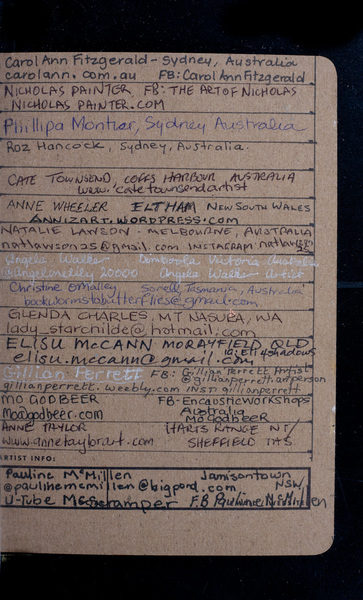 Carol Ann Fitzgerald - Sydney, Australia
carolann.com.au FB: Carol Ann Fitzgerald
NICHOLAS PAINTER FB: THE ART OF NICHOLAS
NICHOLAS PAINTER.COM
Phillipa Sydney Australia
Roz Hancock, Sydney, Australia.
CATE TOWNSEND COFFS HARBOUR AUSTRALIA
www.catetownsendartist
ANNE WHEELER ELTHAM NEW SOUTH WALES
ANNIZART.WORDPRESS.COM
NATALIE LAWSON - MELBOURNE, AUSTRALIA
natlawson25@gmail.com INSTAGRAM
Angela Walker Victoria Australia
Angela Walker Artist
Christine O'Malley Sorell, Tasmania, Australia
bookwormstobutterflies@gmail.com
GLENDA CHARLES, MT NASURA, WA
lady_starchilde@hotmail.com
ELISU MCCANN MORAYFIELD QLD
elisu.mccann@gmail.com
Gillian Perrett FB: Gillian Perrett Artist
@gillianperrettartperson
gillianperrett.weebly.com INST gillianperrett
MO GODBEER FB-ENCAUSTICWORKSHOPS
Australia
Moagodbeer.com MoaGodBeer
ANNE TAYLOR HARTS RANGE NT/
www.annetaylorart.com SHEFFIELD TAS
ARTIST INFO:
Pauline McMillen Jamisontown
@paulinemcmillen@bigpond.com NSW
U-Tube FB Pauline McMillen